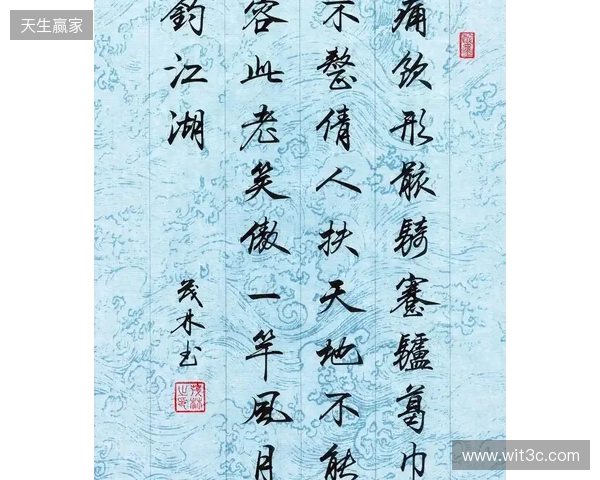 天生赢家
痛飲形骸騎蹇驢葛巾
不整倩人扶天地不能
容此老笑傲一竿風月
釣江湖
茂林书
www.wit3c.com